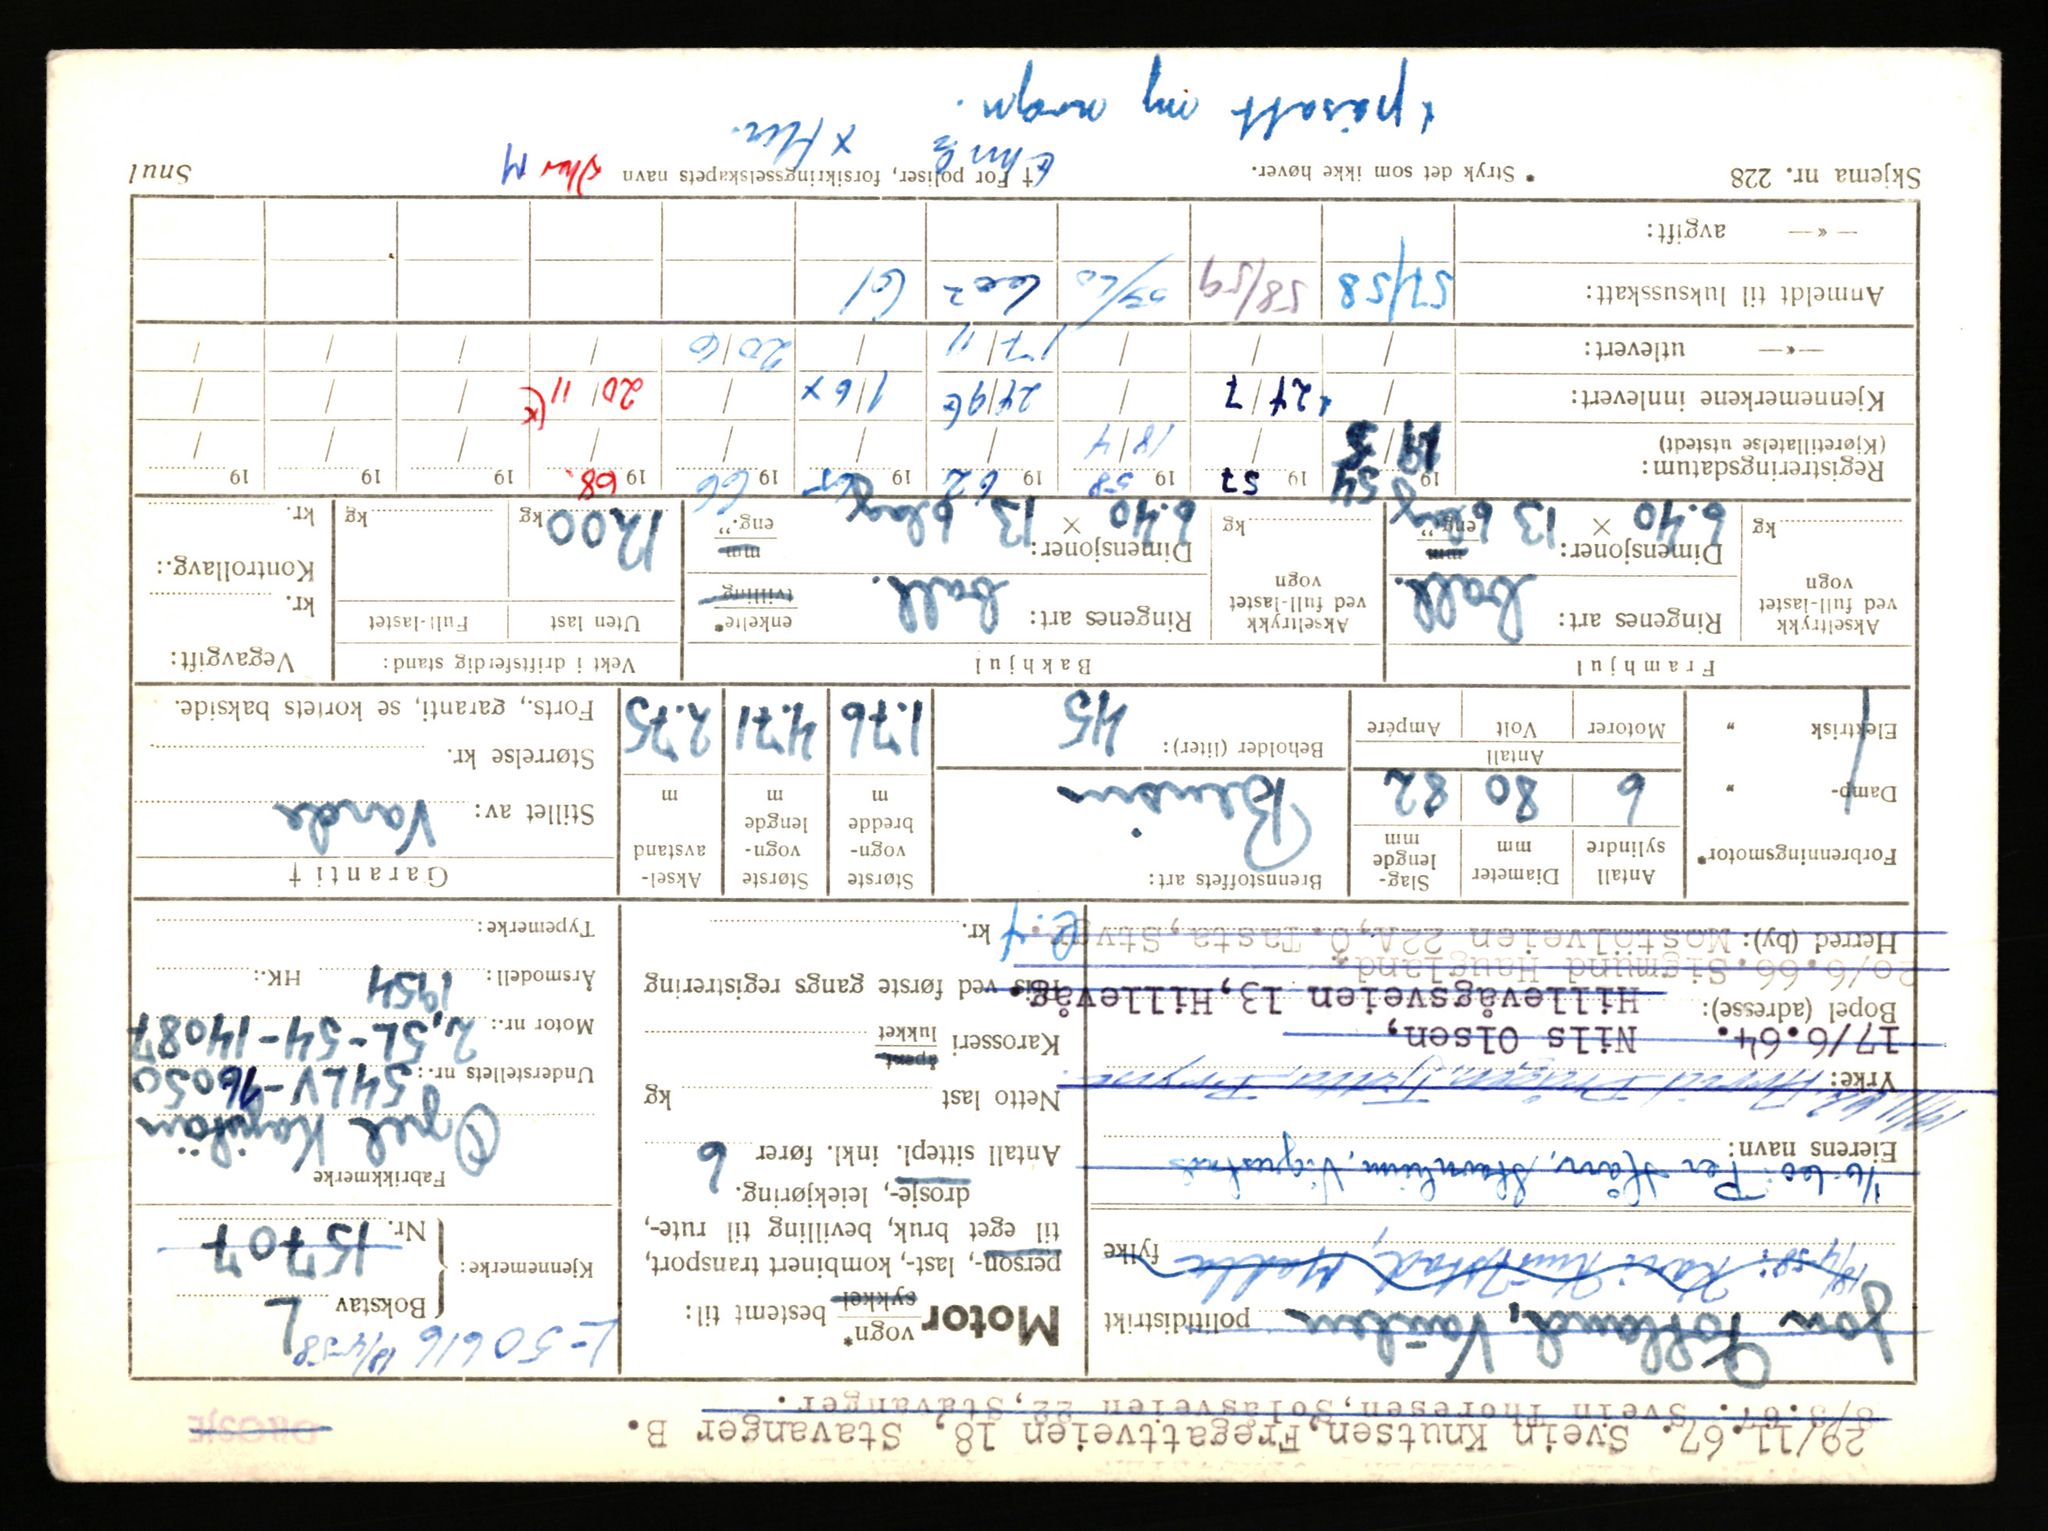 29/11.67. Svein Knutsen, Fregattveien 18, Stavanger B.
8/3.67. Svein Thoresen, Solasveien 22, Stavanger.
DROSJE
L-50616 18/4-58
Jon politidistrikt
18/4-58: fylke
Eierens navn:
Yrke:
17/6.64. Nils Olsen,
Bopel (adresse): Hillevågsveien 13, Hillevåg.
20/6.66. Sigmund Haugland.
Herred (by): Mostølveien 22A, Ø. Tasta, Stvgr.
Motor vogn* sykkel bestemt til:
person-, last-, kombinert transport,
til eget bruk, bevilling til rute-,
drosje-, leiekjøring.
Antall sittepl. inkl. fører 6
Netto last kg
Karosseri åpent lukket
Pris ved første gangs registrering
kr.
Kjennemerke: Bokstav L
Nr. 15707
Fabrikkmerke
Opel Kapitän
Understellets nr.: 54LV-76050
Motor nr.: 2,5L-54-14087
Årsmodell: 1954 HK.:
Typemerke:
Forbrenningsmotor*
Damp- "
Elektrisk "
Antall sylindre 6
Diameter mm 80
Slaglengde mm 82
Antall
Motorer Volt Ampére
Brennstoffets art: Bensin
Beholder (liter): 45
Største vogn-bredde m 1.76
Største vogn-lengde m 4.71
Aksel-avstand m 2.75
Garanti †
Stillet av: Varde
Størrelse kr.
Forts., garanti, se kortets bakside.
Framhjul
Akseltrykk ved full-lastet vogn kg
Ringenes art: ball.
Dimensjoner: 6.40 × 13 mm eng."
Bakhjul
Akseltrykk ved full-lastet vogn kg
Ringenes art: ball. enkelte* tvilling
Dimensjoner: 6.40 × 13 mm eng."
Vekt i driftsferdig stand:
Uten last Full-lastet
1200 kg kg
Vegavgift:
kr.
Kontrollavg.:
kr.
Registreringsdatum: 19 54 19 57 19 58 19 62 19 65 19 66 19 68. 19 19 19
(Kjøretillatelse utstedt) 18/4
Kjennemerkene innlevert: 24/7 24/9 1/6 x 20/11
—«— utlevert: 17/11 20/6
Anmeldt til luksusskatt: 57/58 58/59 59/60 61
—«— avgift:
Skjema nr. 228 * Stryk det som ikke høver. † For poliser, forsikringsselskapets navn Snul
påsatt ny vogn.